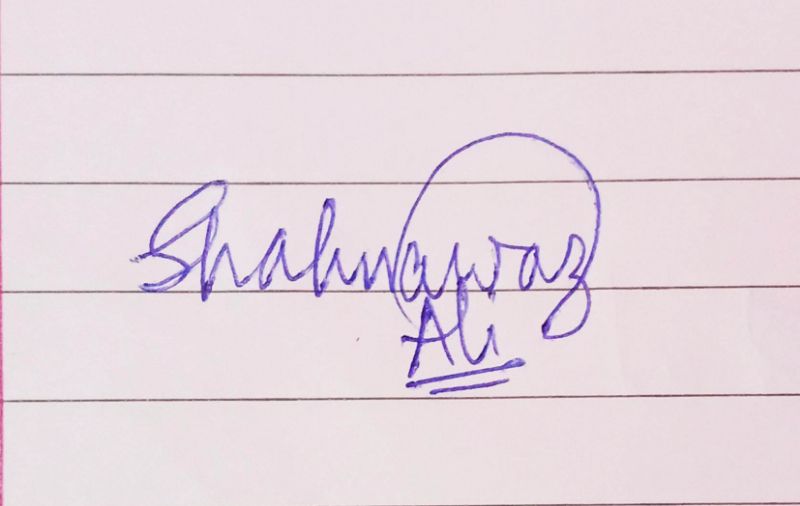 Shahnawaz
Ali